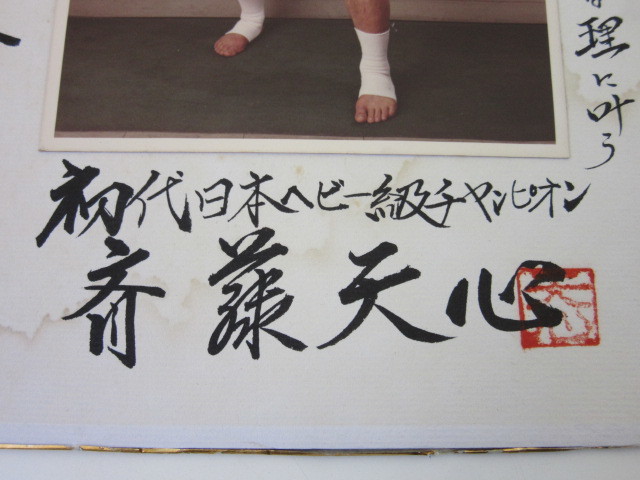 理に叶う
初代日本ヘビー級チャンピオン
斉藤天心